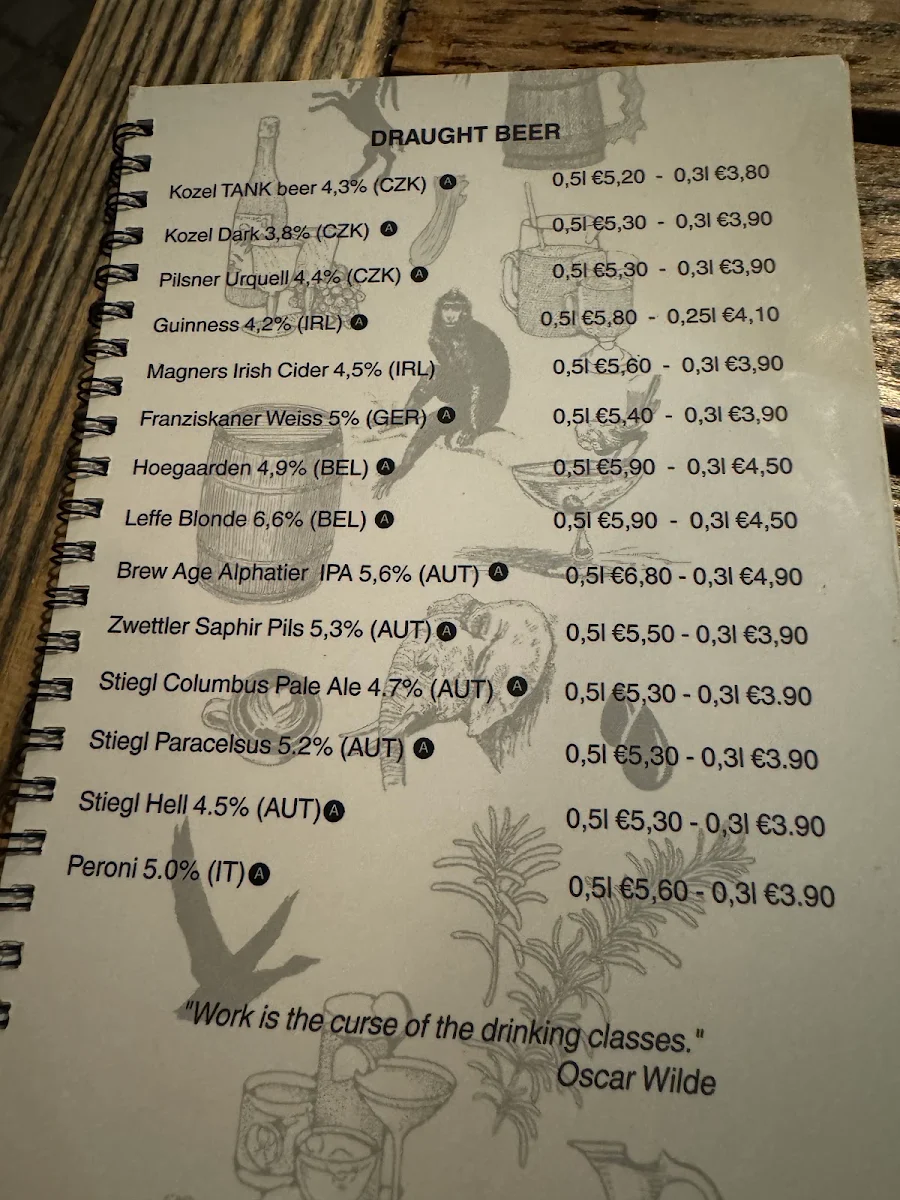 DRAUGHT BEER
Kozel TANK beer 4,3% (CZK) A 0,5l €5,20 - 0,3l €3,80
Kozel Dark 3,8% (CZK) A 0,5l €5,30 - 0,3l €3,90
Pilsner Urquell 4,4% (CZK) A 0,5l €5,30 - 0,3l €3,90
Guinness 4,2% (IRL) A 0,5l €5,80 - 0,25l €4,10
Magners Irish Cider 4,5% (IRL) 0,5l €5,60 - 0,3l €3,90
Franziskaner Weiss 5% (GER) A 0,5l €5,40 - 0,3l €3,90
Hoegaarden 4,9% (BEL) A 0,5l €5,90 - 0,3l €4,50
Leffe Blonde 6,6% (BEL) A 0,5l €5,90 - 0,3l €4,50
Brew Age Alphatier IPA 5,6% (AUT) A 0,5l €6,80 - 0,3l €4,90
Zwettler Saphir Pils 5,3% (AUT) A 0,5l €5,50 - 0,3l €3,90
Stiegl Columbus Pale Ale 4.7% (AUT) A 0,5l €5,30 - 0,3l €3.90
Stiegl Paracelsus 5.2% (AUT) A 0,5l €5,30 - 0,3l €3.90
Stiegl Hell 4.5% (AUT) A 0,5l €5,30 - 0,3l €3.90
Peroni 5.0% (IT) A 0,5l €5,60 - 0,3l €3.90
"Work is the curse of the drinking classes."
Oscar Wilde